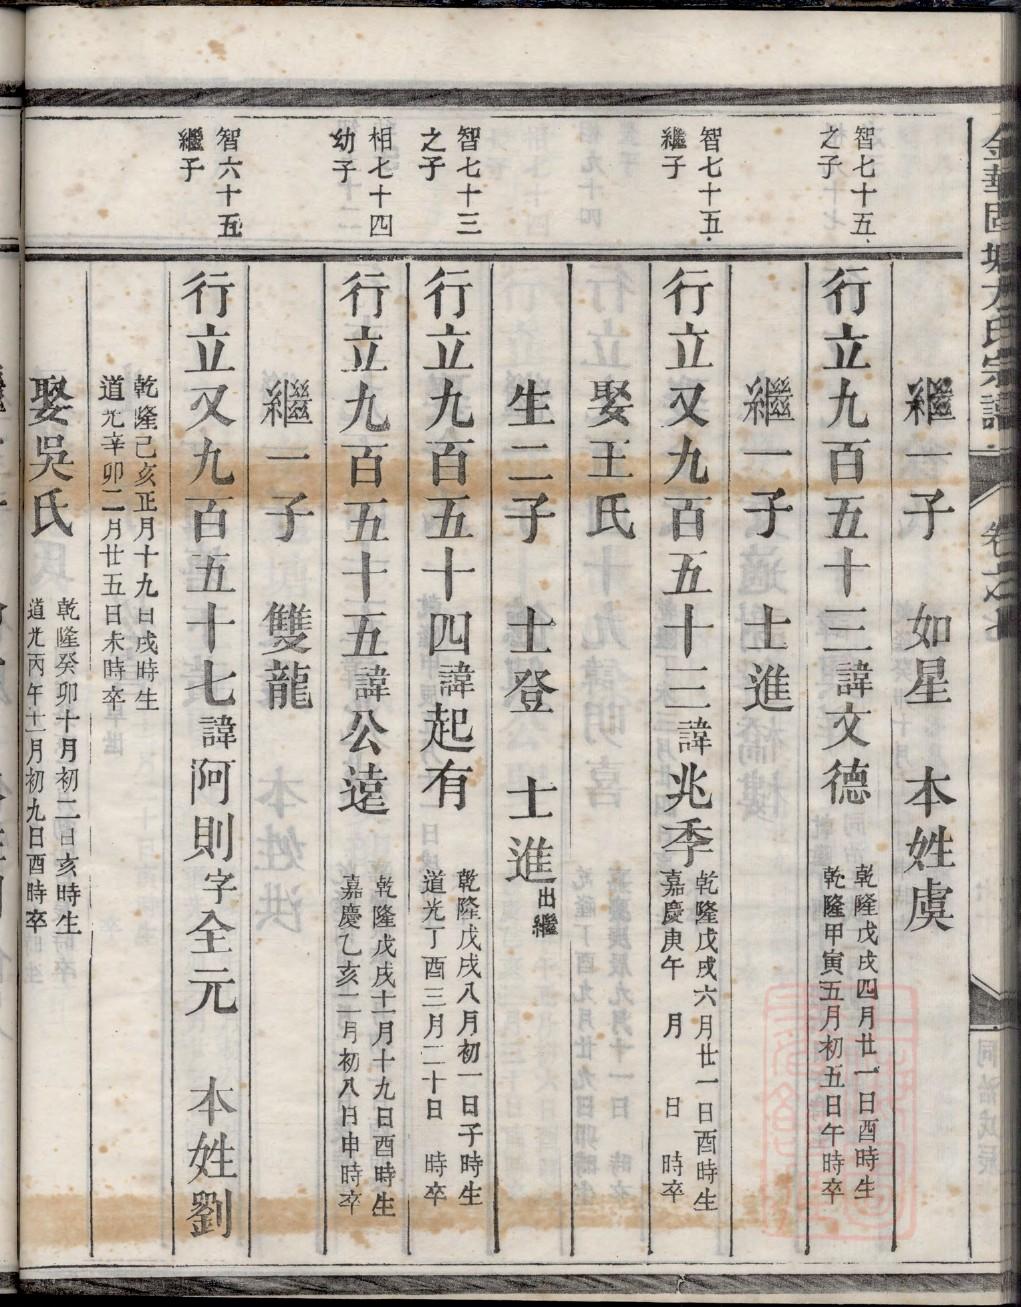 金華固塘方氏宗譜
卷之
同治戊辰
繼一子 如星 本姓虞
智七十五
之子
行立九百五十三諱文德
乾隆戊戌四月廿一日酉時生
乾隆甲寅五月初五日午時卒
繼一子 士進
智七十五
繼子
行立又九百五十三諱兆季
乾隆戊戌六月廿一日酉時生
嘉慶庚午 月 日 時卒
娶王氏
生二子 士登 士進出繼
智七十三
之子
行立九百五十四諱起有
乾隆戊戌八月初一日子時生
道光丁酉三月二十日 時卒
相七十四
幼子
行立九百五十五諱公遠
乾隆戊戌十一月十九日酉時生
嘉慶乙亥二月初八日申時卒
繼一子 雙龍
智六十五
繼子
行立又九百五十七諱阿則字全元 本姓劉
乾隆己亥正月十九日戌時生
道光辛卯二月廿五日未時卒
娶吳氏
乾隆癸卯十月初二日亥時生
道光丙午十一月初九日酉時卒